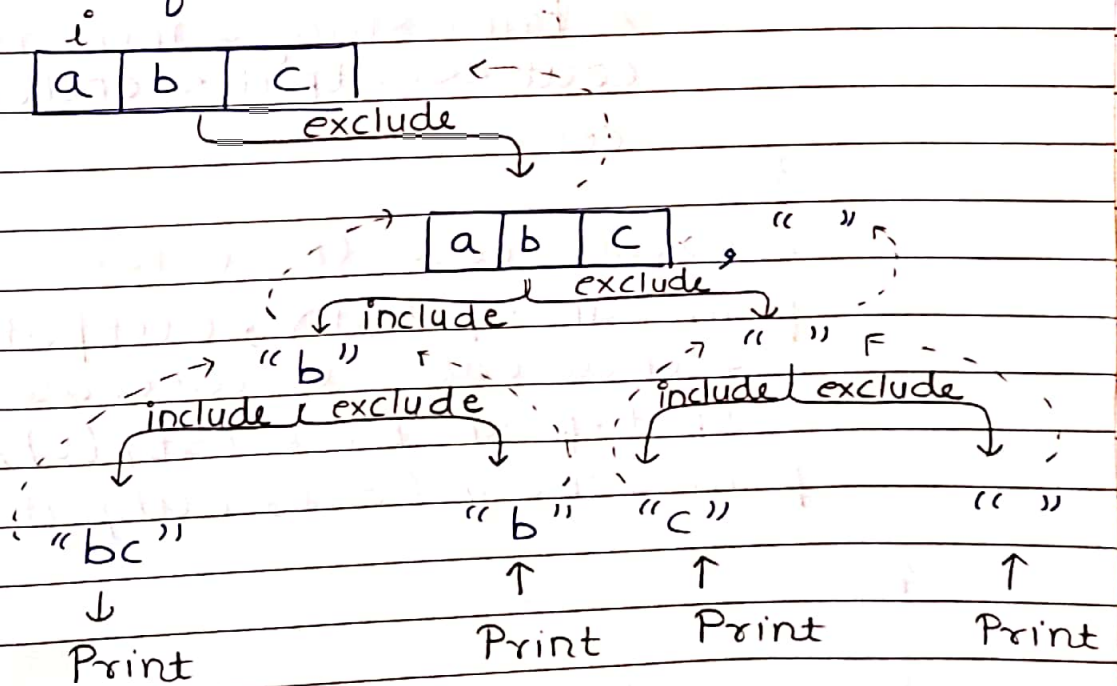 i
a b c
exclude
a b c , “ ”
include exclude
“b” “ ”
include exclude include exclude
“bc” “b” “c” “ ”
Print Print Print Print